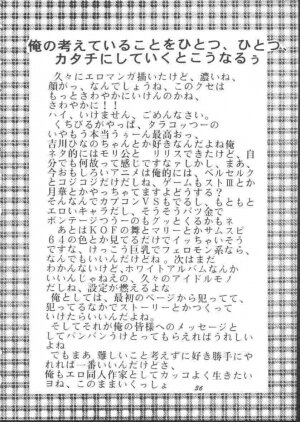 俺の考えていることをひとつ、ひとつ。
カタチにしていくとこうなるぅ
久々にエロマンガ描いたけど、濃いね、
顔がっ、なんでしょうね、このクセは
もっとさわやかにいけんのかね、
さわやかに!!
ハイ、いけません、ごめんなさい。
くちびるがやっぱ、クラコッつーの
いやもう本当うぅーん最高おっ、
吉川ひなのちゃんとか好きなんだよね俺
ネタ的にはモリ公と リリスできたけど、自
分でも何故かって感じですなしかし、まあ、
今おもしろいアニメは俺的には、ベルセルク
とコジコジだけだしね、ゲームもストⅢとか
月華とかやっちゃてますよどうする?
そんなんでカプコンVSもでるし、もともと
エロいキャラだし、そうそうパツ金で
ボンテージ ツーのもグッとくるかもネ
あとはKOFの舞とマリーとかサムスピ
64の色とか見てるだけでイッちゃいそう
ですな、けっこう巨乳でフェロモン系なら、
なんでもいいんだけどね。次はまだ
わかんないけど、ホワイトアルバムなんか
いいんじゃねえの、久々のアイドルモノ
だしね、設定が燃えるよな
俺としては、最初のページから犯ってて、
犯ってるなかでストーリーとかつくって
いけたらいいんだよね。
そしてそれが俺の皆様へのメッセージと
してバンバンうけとってもらえればうれしい
よね
でもまあ 難しいこと考えずに好き勝手に
やれれば一番いいんだけどさ、
俺もエロ同人作家としてカッコよく生きたい
ヨね、このままいくっしょ
36